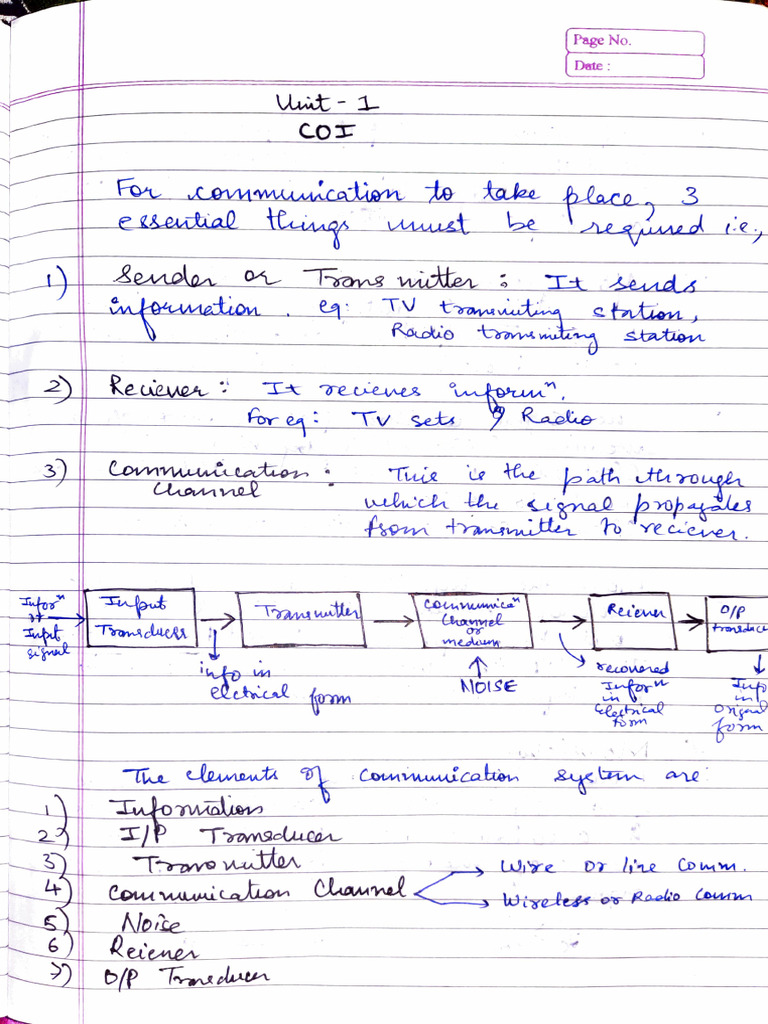 Page No.
Date :
Unit - 1
COI
For communication to take place, 3
essential things must be required i.e.,
1) Sender or Transmitter : It sends
information. eg: TV transmiting station,
Radio transmiting station
2) Reciever : It recieves informⁿ.
For eg : TV sets, Radio
3) Communication : This is the path through
Channel which the signal propagates
from transmitter to reciever.
Inforⁿ
Input
signal
Input
Transducer
info in
electrical form
Transmitter
Communicaⁿ
Channel
or
medium
NOISE
Reiever
recovered
Inforⁿ
in
Electrical
form
O/P
transduce
Info
in
Original
form
The elements of communication system are
1) Information
2) I/P Transducer
3) Transmitter
4) Communication Channel
Wire or line Comm.
Wireless or Radio Comm
5) Noise
6) Reiever
7) O/P Transducer